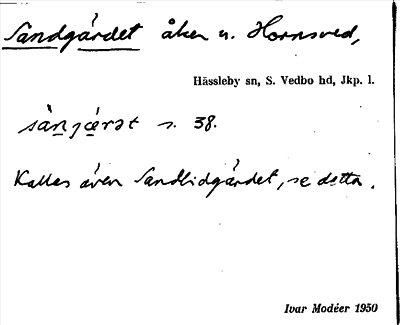 Sandgärdet åker u. Hornsved,
Hässleby sn, S. Vedbo hd, Jkp. l.
sànjæ̀rət s. 38.
Kallas även Sandlidgärdet, se detta.
Ivar Modéer 1950